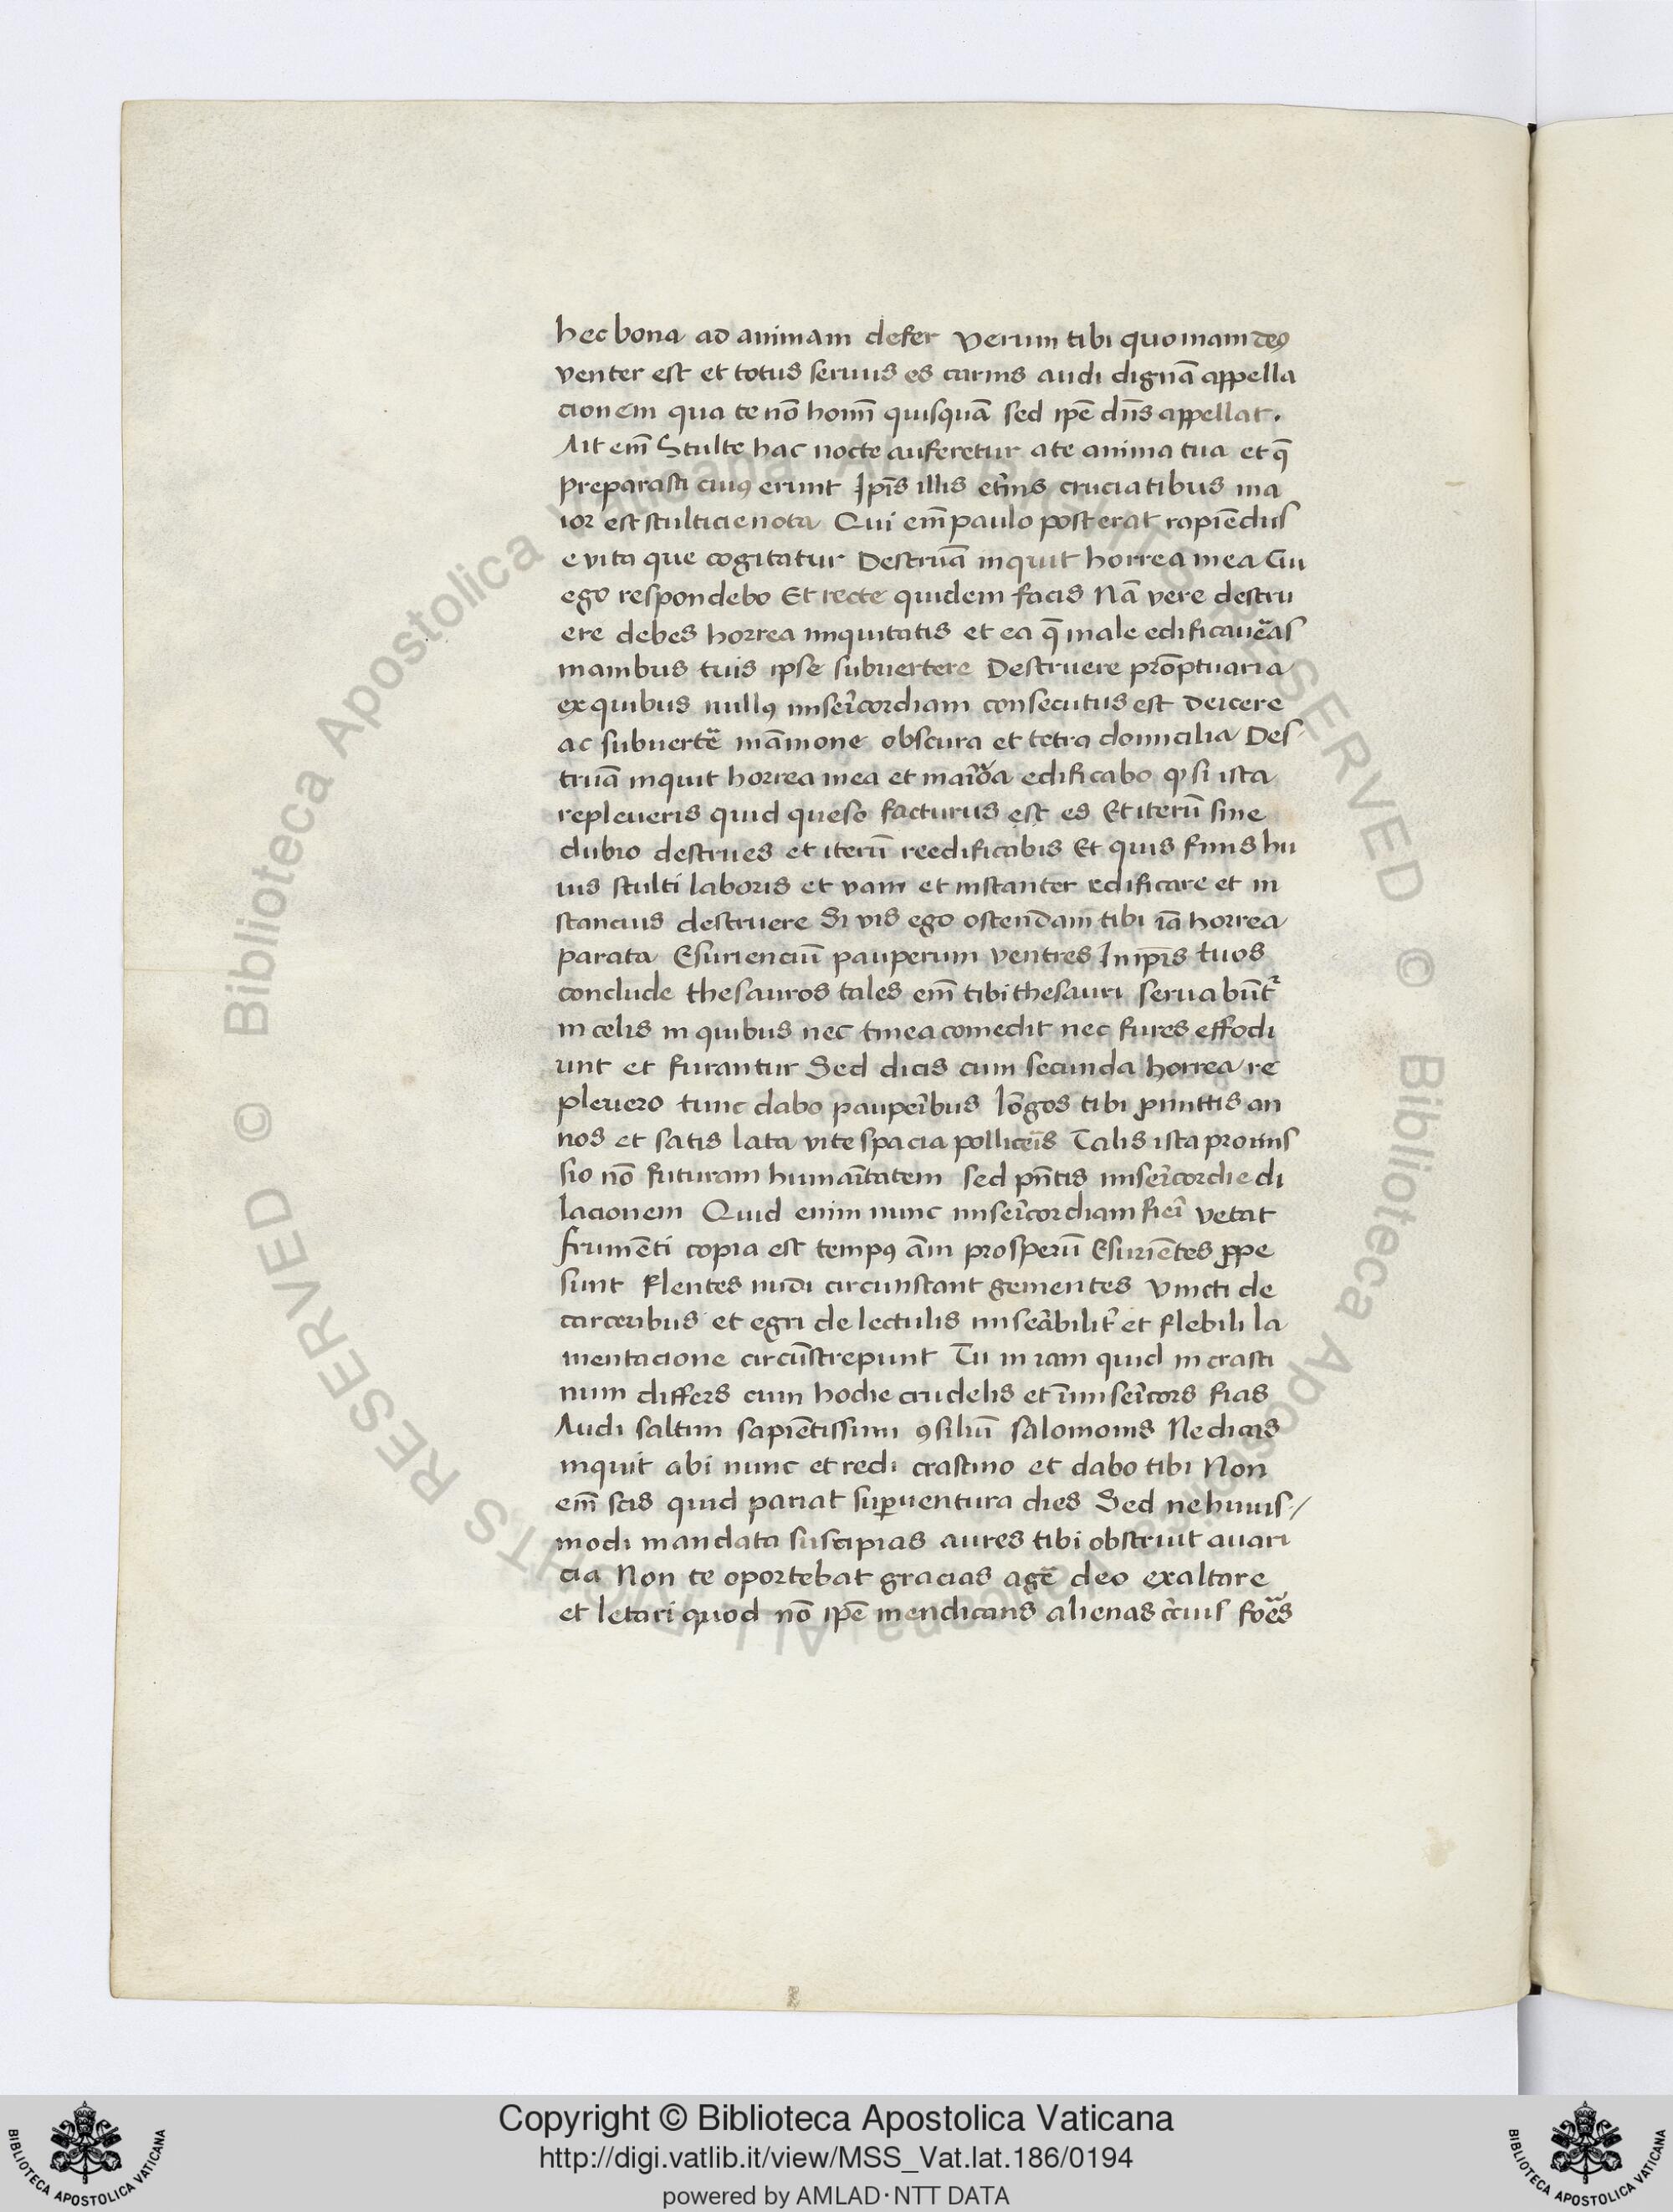 hec bona ad animam defer Verum tibi quoniam deꝰ
venter est et totus seruus es carnis audi dignā appella
cionem qua te nō homī quisquā sed ipē dn̄s appellat.
Ait em̄ Stulte hac nocte auferetur a te anima tua et q̄
preparasti cuiꝰ erunt Ip̄is illis et̄nis cruciatibus ma
ior est stulticie nota Qui em̄ paulo post erat rapiēdus
e vita que cogitatur Destruā inquit horrea mea Cui
ego respondebo Et recte quidem facis Nā vere destru
ere debes horrea iniquitatis et ea q̄ male edificaūas
manibus tuis ipse subuertere Destruere prōptuaria
ex quibus nullꝰ miserīcordiam consecutus est deicere
ac subuertē māmone obscura et tetra domicilia Des
truā inquit horrea mea et maiōa edificabo ꝙ si ista
repleueris quid queso facturus est es Et iterū sine
dubio destrues et iterū reedificabis Et quis finis hu
ius stulti laboris et vani et instanter edificare et in
stancius destruere Si vis ego ostendam tibi iā horrea
parata Esurienciū pauperum ventres In ip̄is tuos
conclude thesauros tales em̄ tibi thesauri seruabūt᷑
in celis in quibus nec tinea comedit nec fures effodi
unt et furantur Sed dicis cum secunda horrea re
pleuero tunc dabo pauperībus lōgos tibi ꝓmittis an
nos et satis lata vite spacia polliceīs Talis ista promis
sio nō futuram humaītatem sed pn̄tis miserīcordie di
lacionem Quid enim nunc miserīcordiam fierī vetat
frumēti copia est tempꝰ am̄ prosperū Esuriētes ꝓpe
sunt flentes nudi circunstant gementes Vincti de
carceribus et egri de lectulis miserābilit᷑ et flebili la
mentacione circūstrepunt Tu in iam quid in crasti
num differs cum hodie crudelis et īmiserīcors fias
Audi saltim sapiētissimi ꝯsiliū salomonis Ne dicas
inquit abi nunc et redi crastino et dabo tibi Non
em̄ scis quid pariat suꝑuentura dies Sed ne huius/
modi mandata suscipias aures tibi obstruit auari
cia Non te oportebat gracias agē deo exaltare
et letari quod nō ipē mendicans alienas foēs
Copyright © Biblioteca Apostolica Vaticana
http://digi.vatlib.it/view/MSS_Vat.lat.186/0194
powered by AMLAD·NTT DATA
BIBLIOTECA APOSTOLICA VATICANA
BIBLIOTECA APOSTOLICA VATICANA